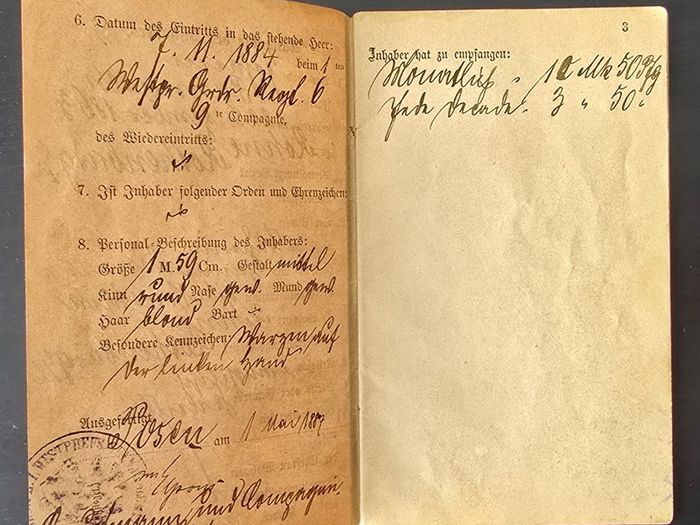 6. Datum des Eintritts in das stehende Heer:
7. 11. 1884
beim 1 ten
Westpr. Grdr. Regt. 6
9 te Compagnie,
des Wiedereintritts:
7. Ist Inhaber folgender Orden und Ehrenzeichen:
8. Personal-Beschreibung des Inhabers:
Größe 1 M. 59 Cm. Gestalt mittel
Kinn rund Nase gew. Mund gew.
Haar blond Bart ÷
Besondere Kennzeichen: Warzen auf
der linken Hand
Ausgefertigt
Posen am 1 Mai 188
und Compagnie
WESTPREUSS
3
Inhaber hat zu empfangen:
Monatlich " 10 Mk 50 Pfg
Jede Decade. 3 " 50 "